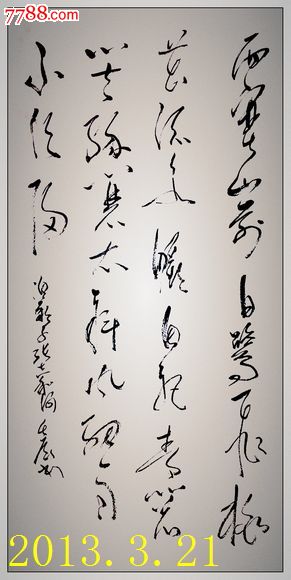 7788.com
西塞山前白鹭飞桃
花流水鳜鱼肥青箬
笠绿蓑衣斜风细雨
不须归
2013.3.21